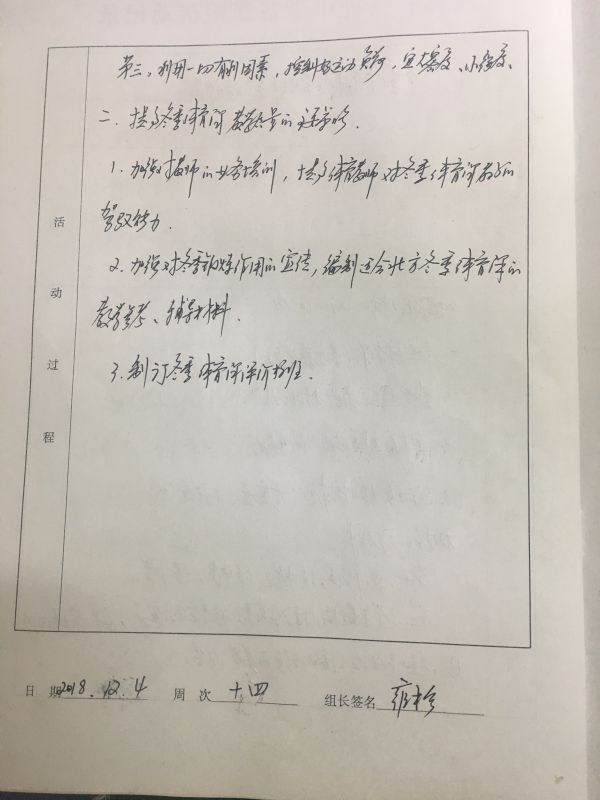 第三，利用一切有利因素，控制好运动负荷，宜大密度、小强度、
二．提高冬季体育课教学质量的
1．加强对教师的业务培训，提高体育教师对冬季体育课教学的
驾驭能力．
2．加强对冬季锻炼作用的宣传，编制适合北方冬季体育课的
教学参考、辅导材料．
3．制订冬季体育课评价
活动过程
日 期 2018．12．4 周 次 十四 组长签名